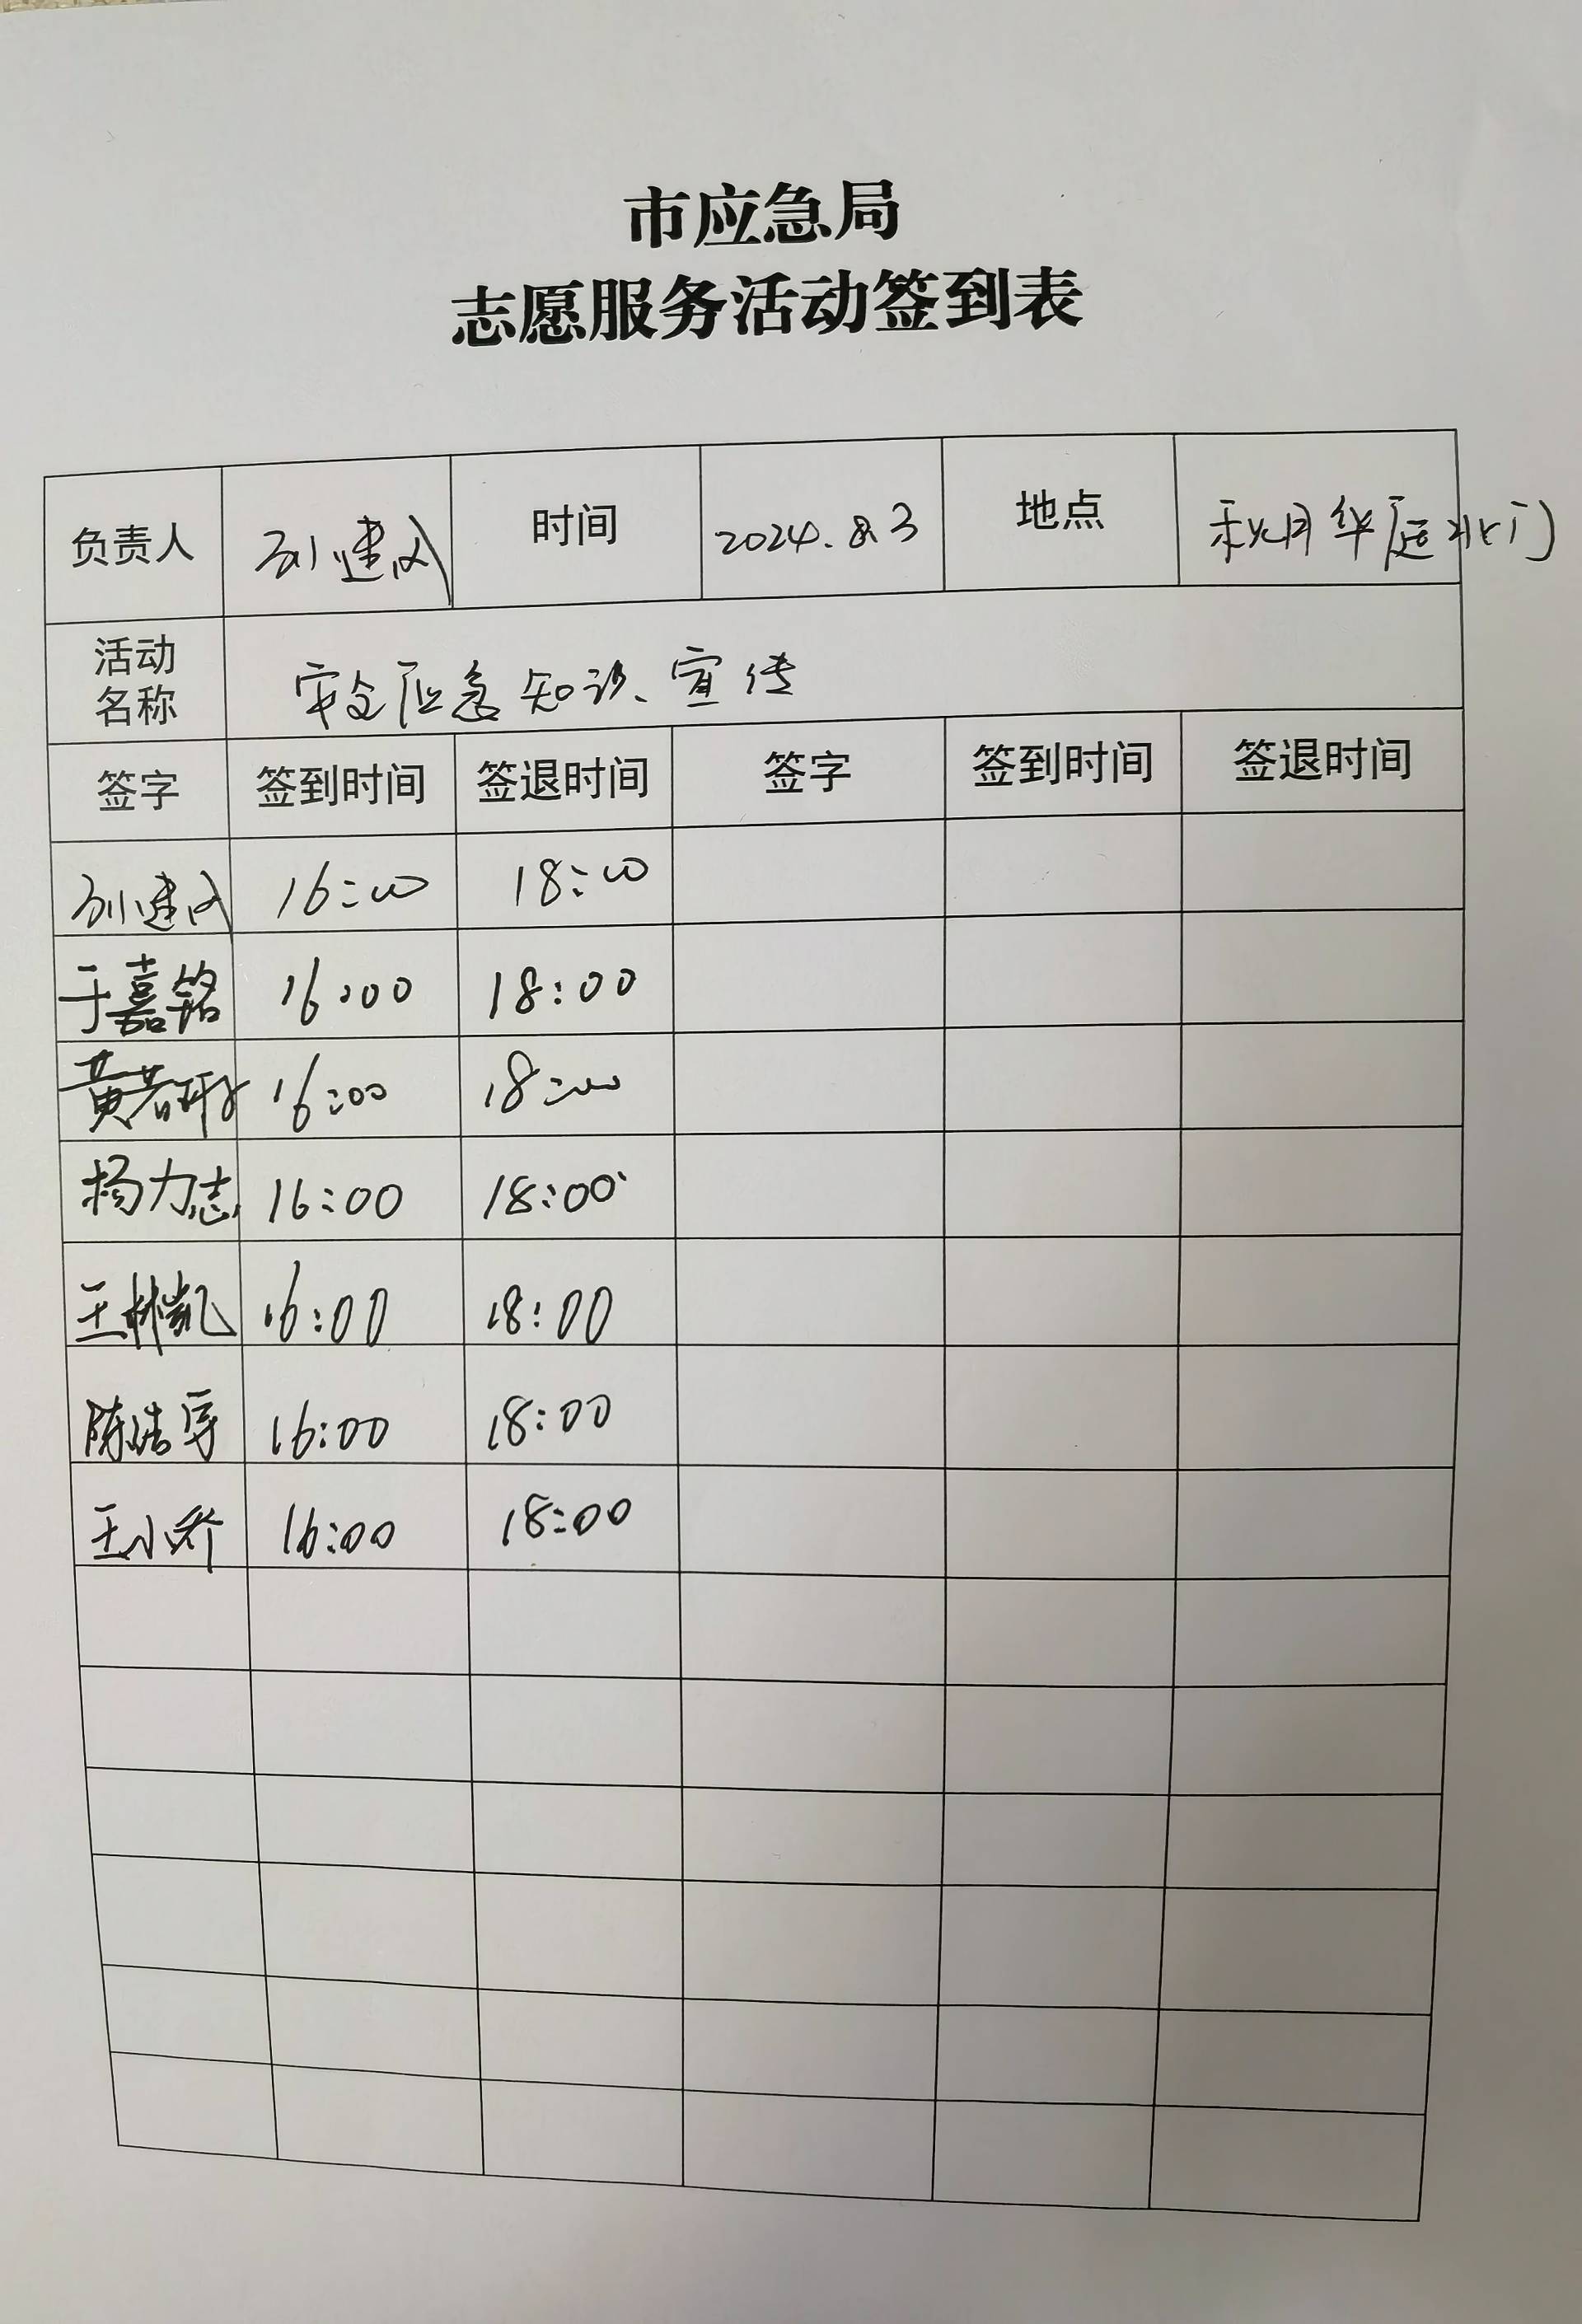 市应急局
志愿服务活动签到表
负责人 刘建成 时间 2024.8.3 地点 秋月华庭北门
活动名称 安全应急知识宣传
签字 签到时间 签退时间 签字 签到时间 签退时间
刘建成 16:00 18:00
于嘉铭 16:00 18:00
黄若 16:00 18:00
杨力志 16:00 18:00
王林凯 16:00 18:00
陈浩宇 16:00 18:00
王小乔 16:00 18:00